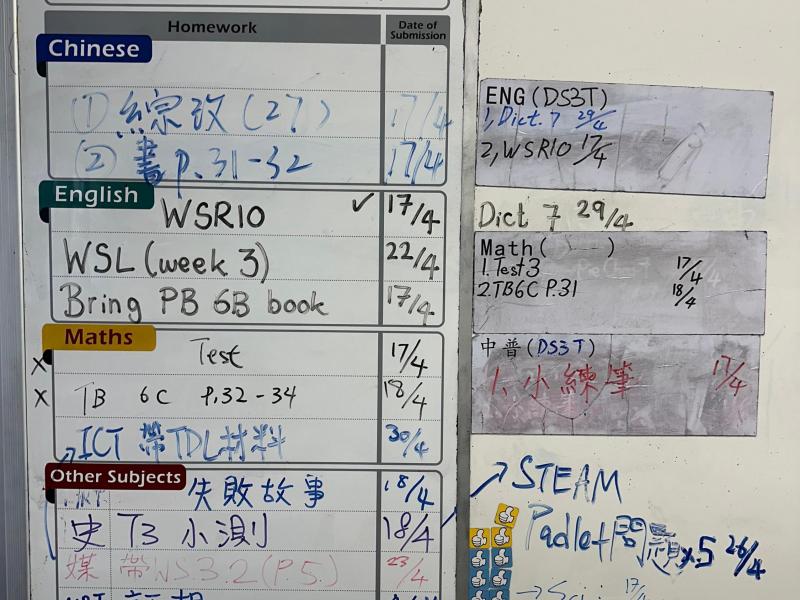 Homework Date of Submission
Chinese
① 綜改(27) 17/4
② 書 p.31-32 17/4
English
WSR10 ✓ 17/4
WSL (week 3) 22/4
Bring PB 6B book 17/4
Maths
x Test 17/4
x TB 6C P.32-34 18/4
ICT 帶TDL材料 30/4
Other Subjects
失敗故事 18/4
史 T3 小測 18/4
媒 帶WS3.2(P.5) 23/4
ENG (DS3T)
1, Dict. 7 29/4
2, WSR10 17/4
Dict 7 29/4
Math ( )
1. Test 3 17/4
2. TB6C P.31 18/4
中普 (DS3T)
1. 小練筆 17/4
→ STEAM
Padlet問題 x.5 26/4
17/4